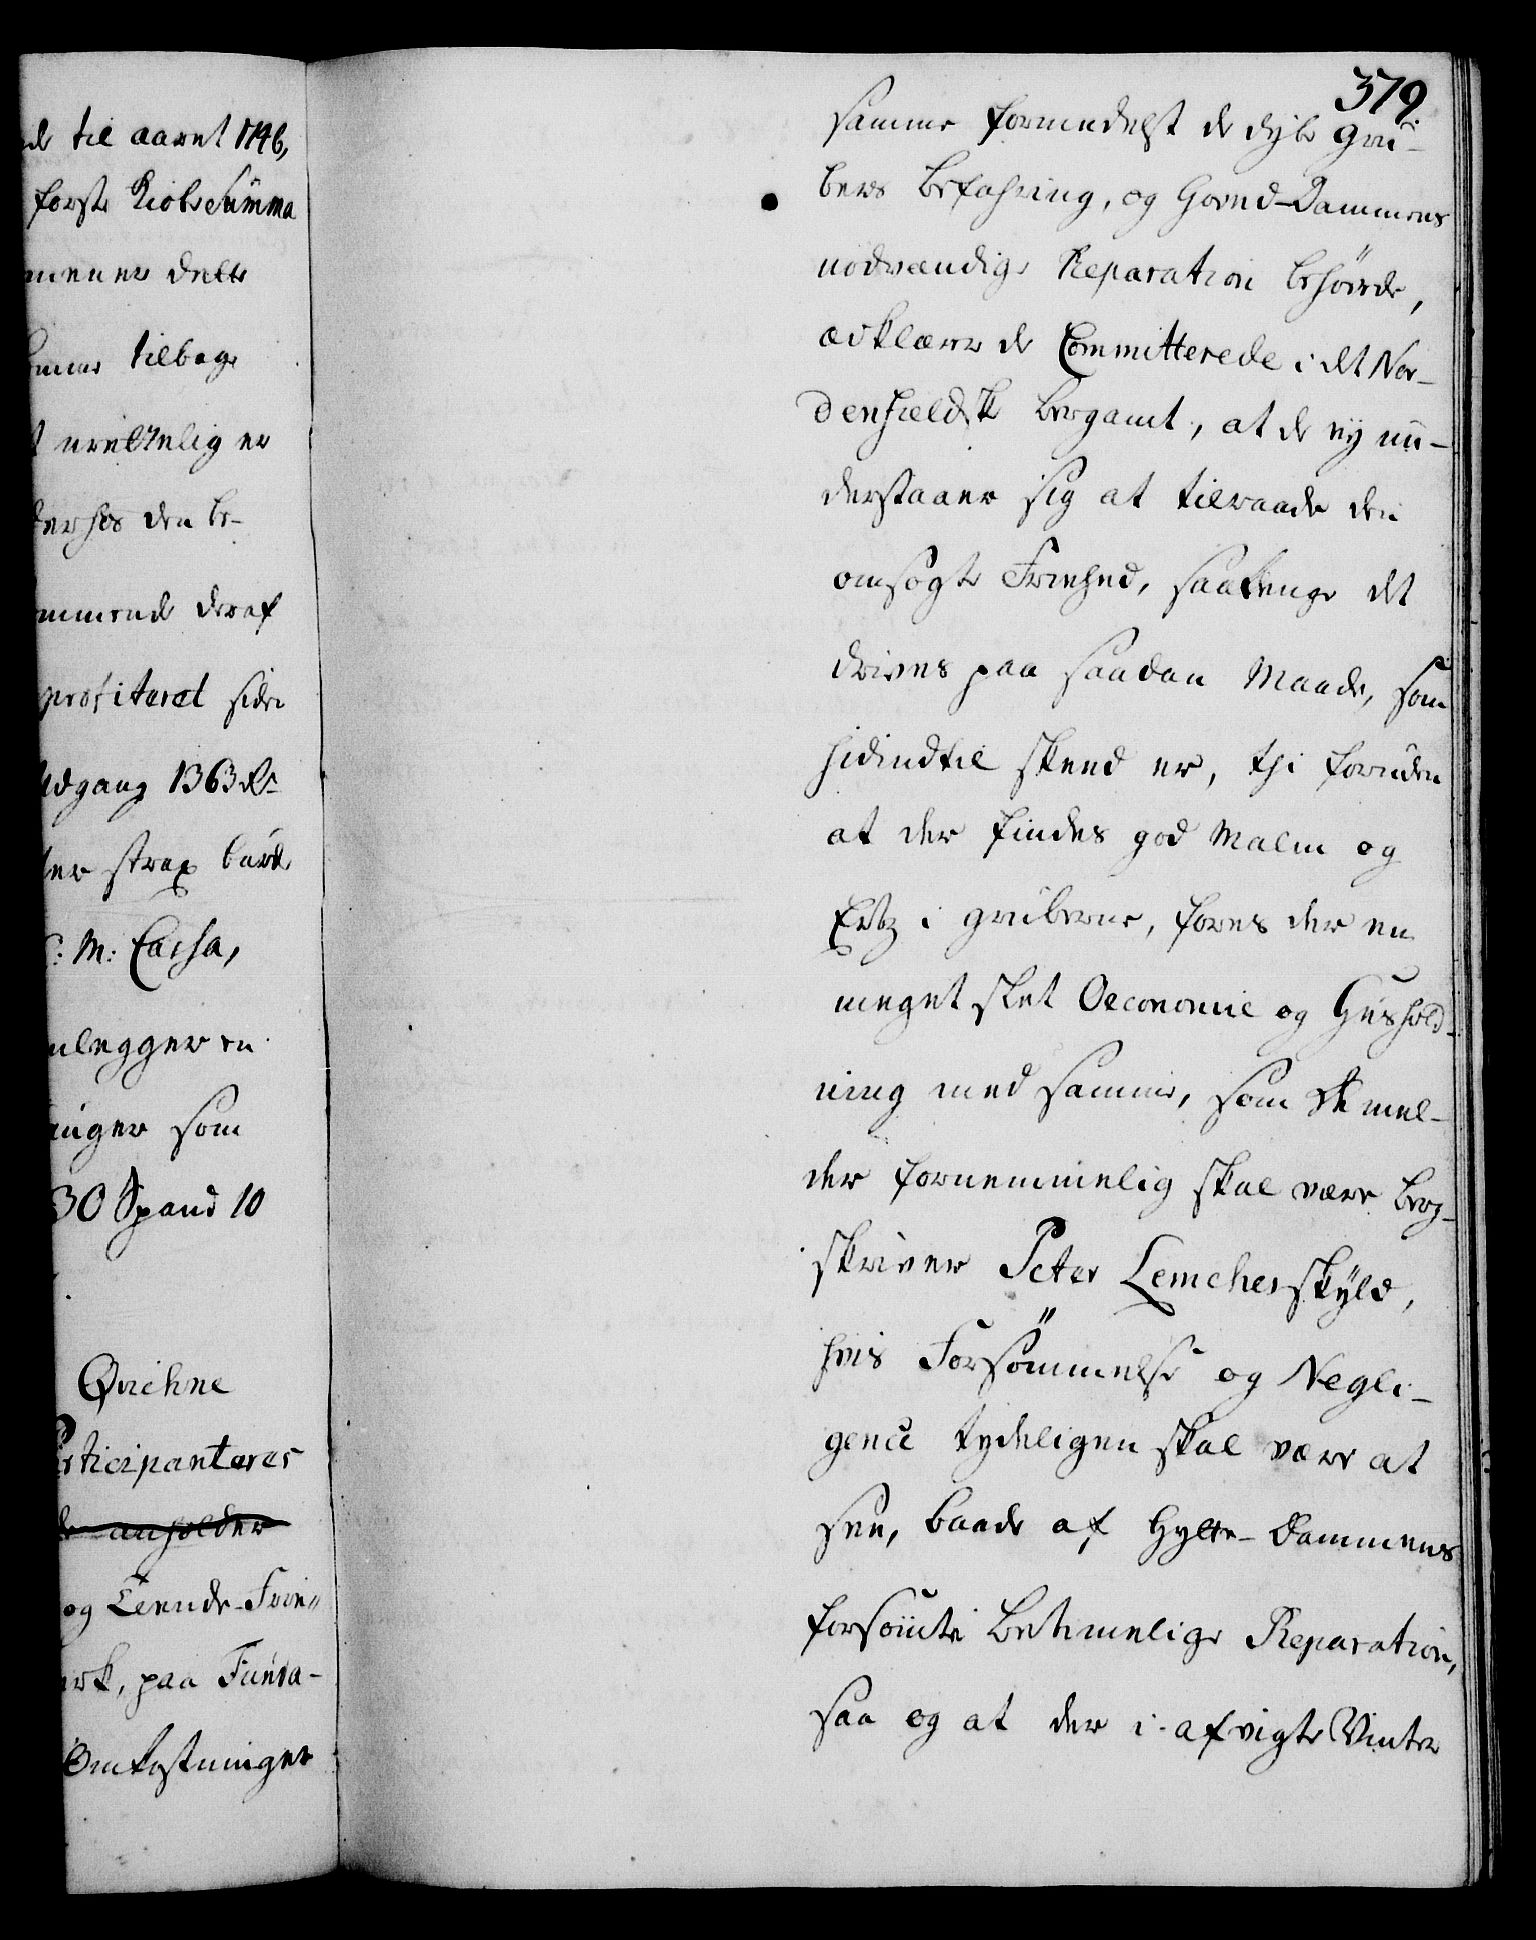 de til aaret 1746,
første Kiøbe Summa
mener dette
tilbage
urettelig er
derhos den be-
ommende deraf
profiteret siden
Udgang 1363 Rd
er strax burde
: M: Cassa,
nlegger en
nger som
30 Spand 10
Qvickne
Participanteres
de anholder
og Tiende-Frie-
erk, paa Funda-
Omkostninger
379.
samme formedelst de dybe Gru-
bers Befahring, og Grund-Dammens
nødvendige Reparation behøvede,
erklærer de Committerede i det Nor-
denfieldske Bergamt, at de ej un-
derstaaer sig at tilraade den
omsøgte Friehed, saalenge det
drives paa saadan Maade, som
hidindtil skeed er, thi foruden
at der findes god Malm og
Ertz i gruberne, føres der en
meget slet Oeconomie og Huushold-
ning med samme, som de mel-
der fornemmelig skal være Berg-
skriver Peter Lemches skyld,
hvis Forsömmelse og Negli-
gence tydeligen skal være at
see, baade af Hytte-Dammens
forsømte betimelige Reparation,
saa og at der i afvigte Vinter